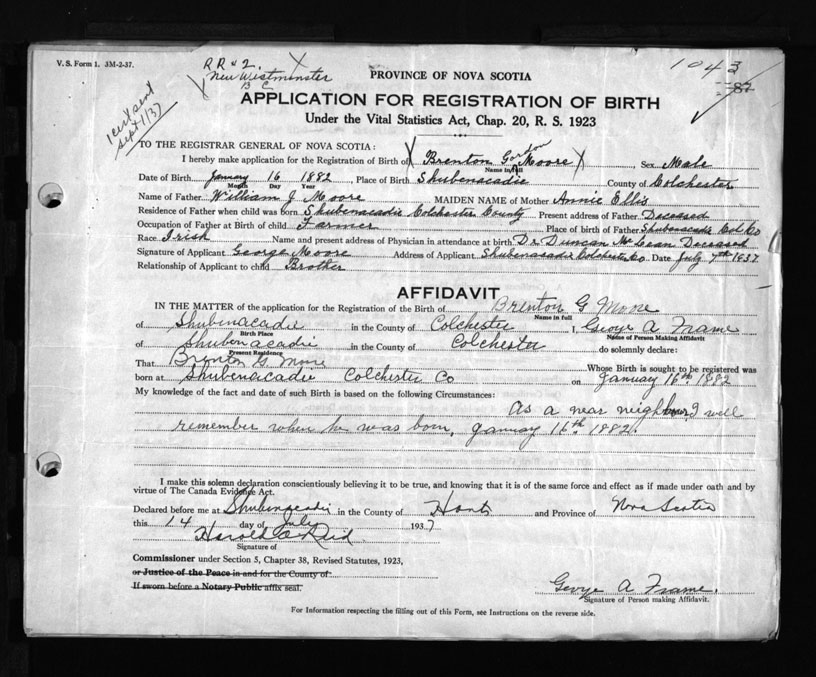 V. S. Form 1. 3M-2-37.
R R # 2.
New Westminster
B C
1 cert sent
Sept 1/37
1043
87
PROVINCE OF NOVA SCOTIA
APPLICATION FOR REGISTRATION OF BIRTH
Under the Vital Statistics Act, Chap. 20, R. S. 1923
TO THE REGISTRAR GENERAL OF NOVA SCOTIA:
I hereby make application for the Registration of Birth of Brenton Gordon Moore Sex Male
Name in full
Date of Birth January 16 1882, Place of Birth Shubenacadie County of Colchester
Month Day Year
Name of Father William J Moore MAIDEN NAME of Mother Annie Ellis
Residence of Father when child was born Shubenacadie Colchester County Present address of Father Deceased
Occupation of Father at Birth of child Farmer Place of birth of Father Shubenacadie Col. Co
Race Irish Name and present address of Physician in attendance at birth Dr Duncan McLean Deceased
Signature of Applicant George Moore Address of Applicant Shubenacadie Colchester Co. Date July 7th 1937
Relationship of Applicant to child Brother
AFFIDAVIT
IN THE MATTER of the application for the Registration of the Birth of Brenton G Moore
Name in full
of Shubenacadie in the County of Colchester I, George A Frame
Birth Place Name of Person Making Affidavit
of Shubenacadie in the County of Colchester do solemnly declare:
Present Residence
That Brenton G Moore Whose Birth is sought to be registered was
born at Shubenacadie Colchester Co on January 16th 1882
My knowledge of the fact and date of such Birth is based on the following Circumstances:
As a near neighbour I well
remember when he was born, January 16th 1882.
I make this solemn declaration conscientiously believing it to be true, and knowing that it is of the same force and effect as if made under oath and by
virtue of The Canada Evidence Act.
Declared before me at Shubenacadie in the County of Hants and Province of Nova Scotia
this 14 day of July 1937
Harold A Reid
Signature of
Commissioner under Section 5, Chapter 38, Revised Statutes, 1923,
or Justice of the Peace in and for the County of
If sworn before a Notary Public affix seal.
George A Frame.
Signature of Person making Affidavit.
For Information respecting the filling out of this Form, see Instructions on the reverse side.